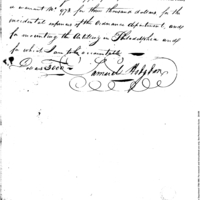 a warrant No 973 for three thousand dollars for the
incidental expences of the Ordnance department, and
for mounting the Artillery in Philadelphia and
for which I am accountable
Samuel Hodgdon